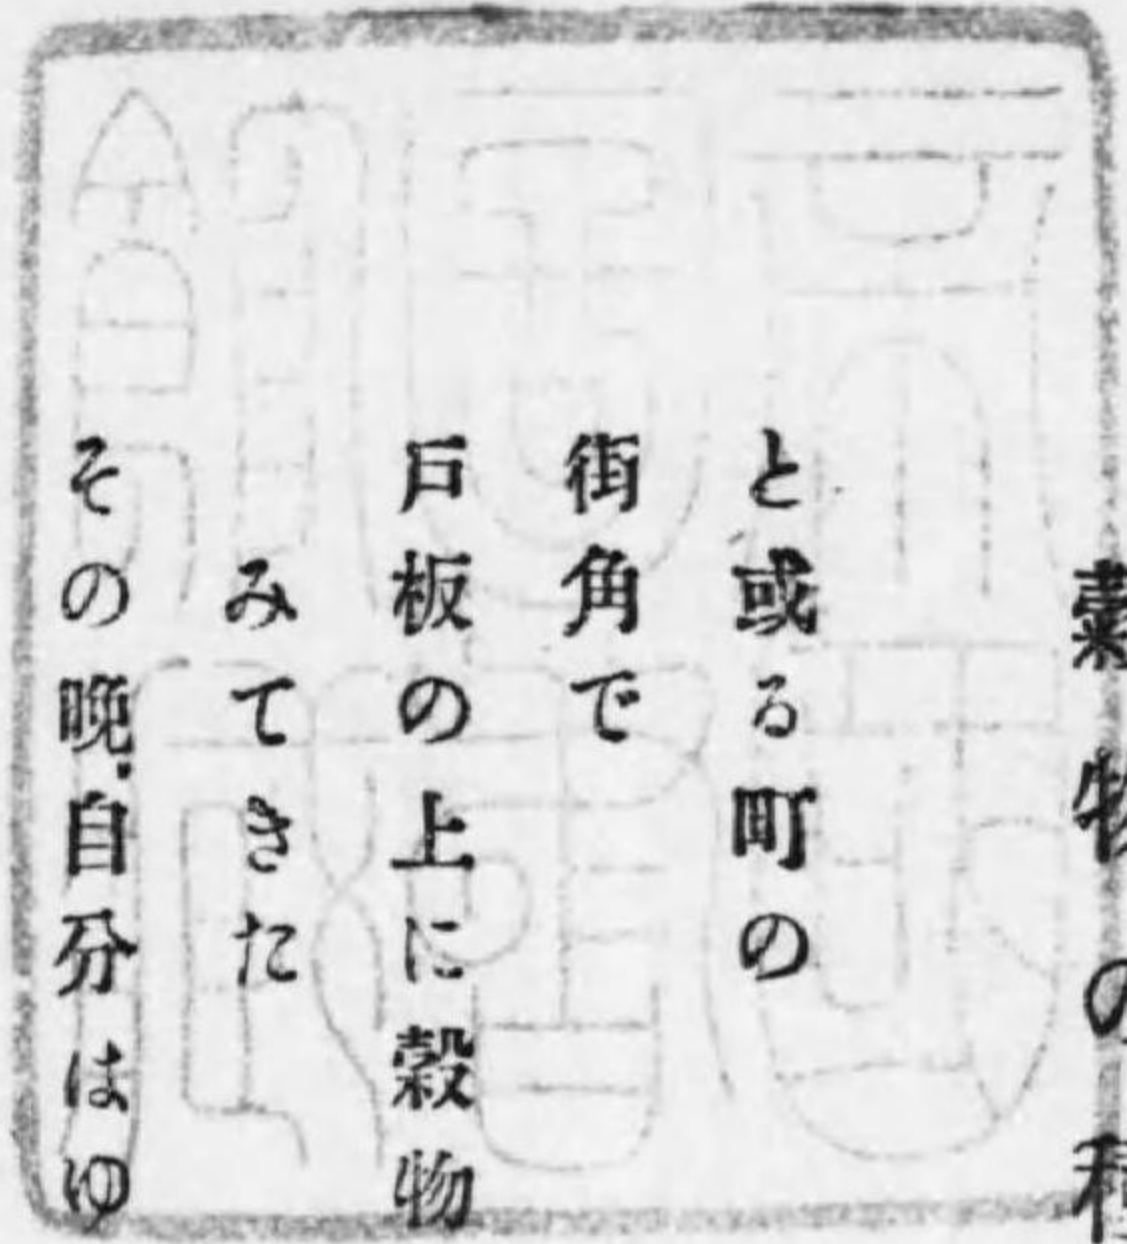 穀物の種
と或る町の
街角で
戸板の上に穀物
みてきた
その晩、自分はゆ